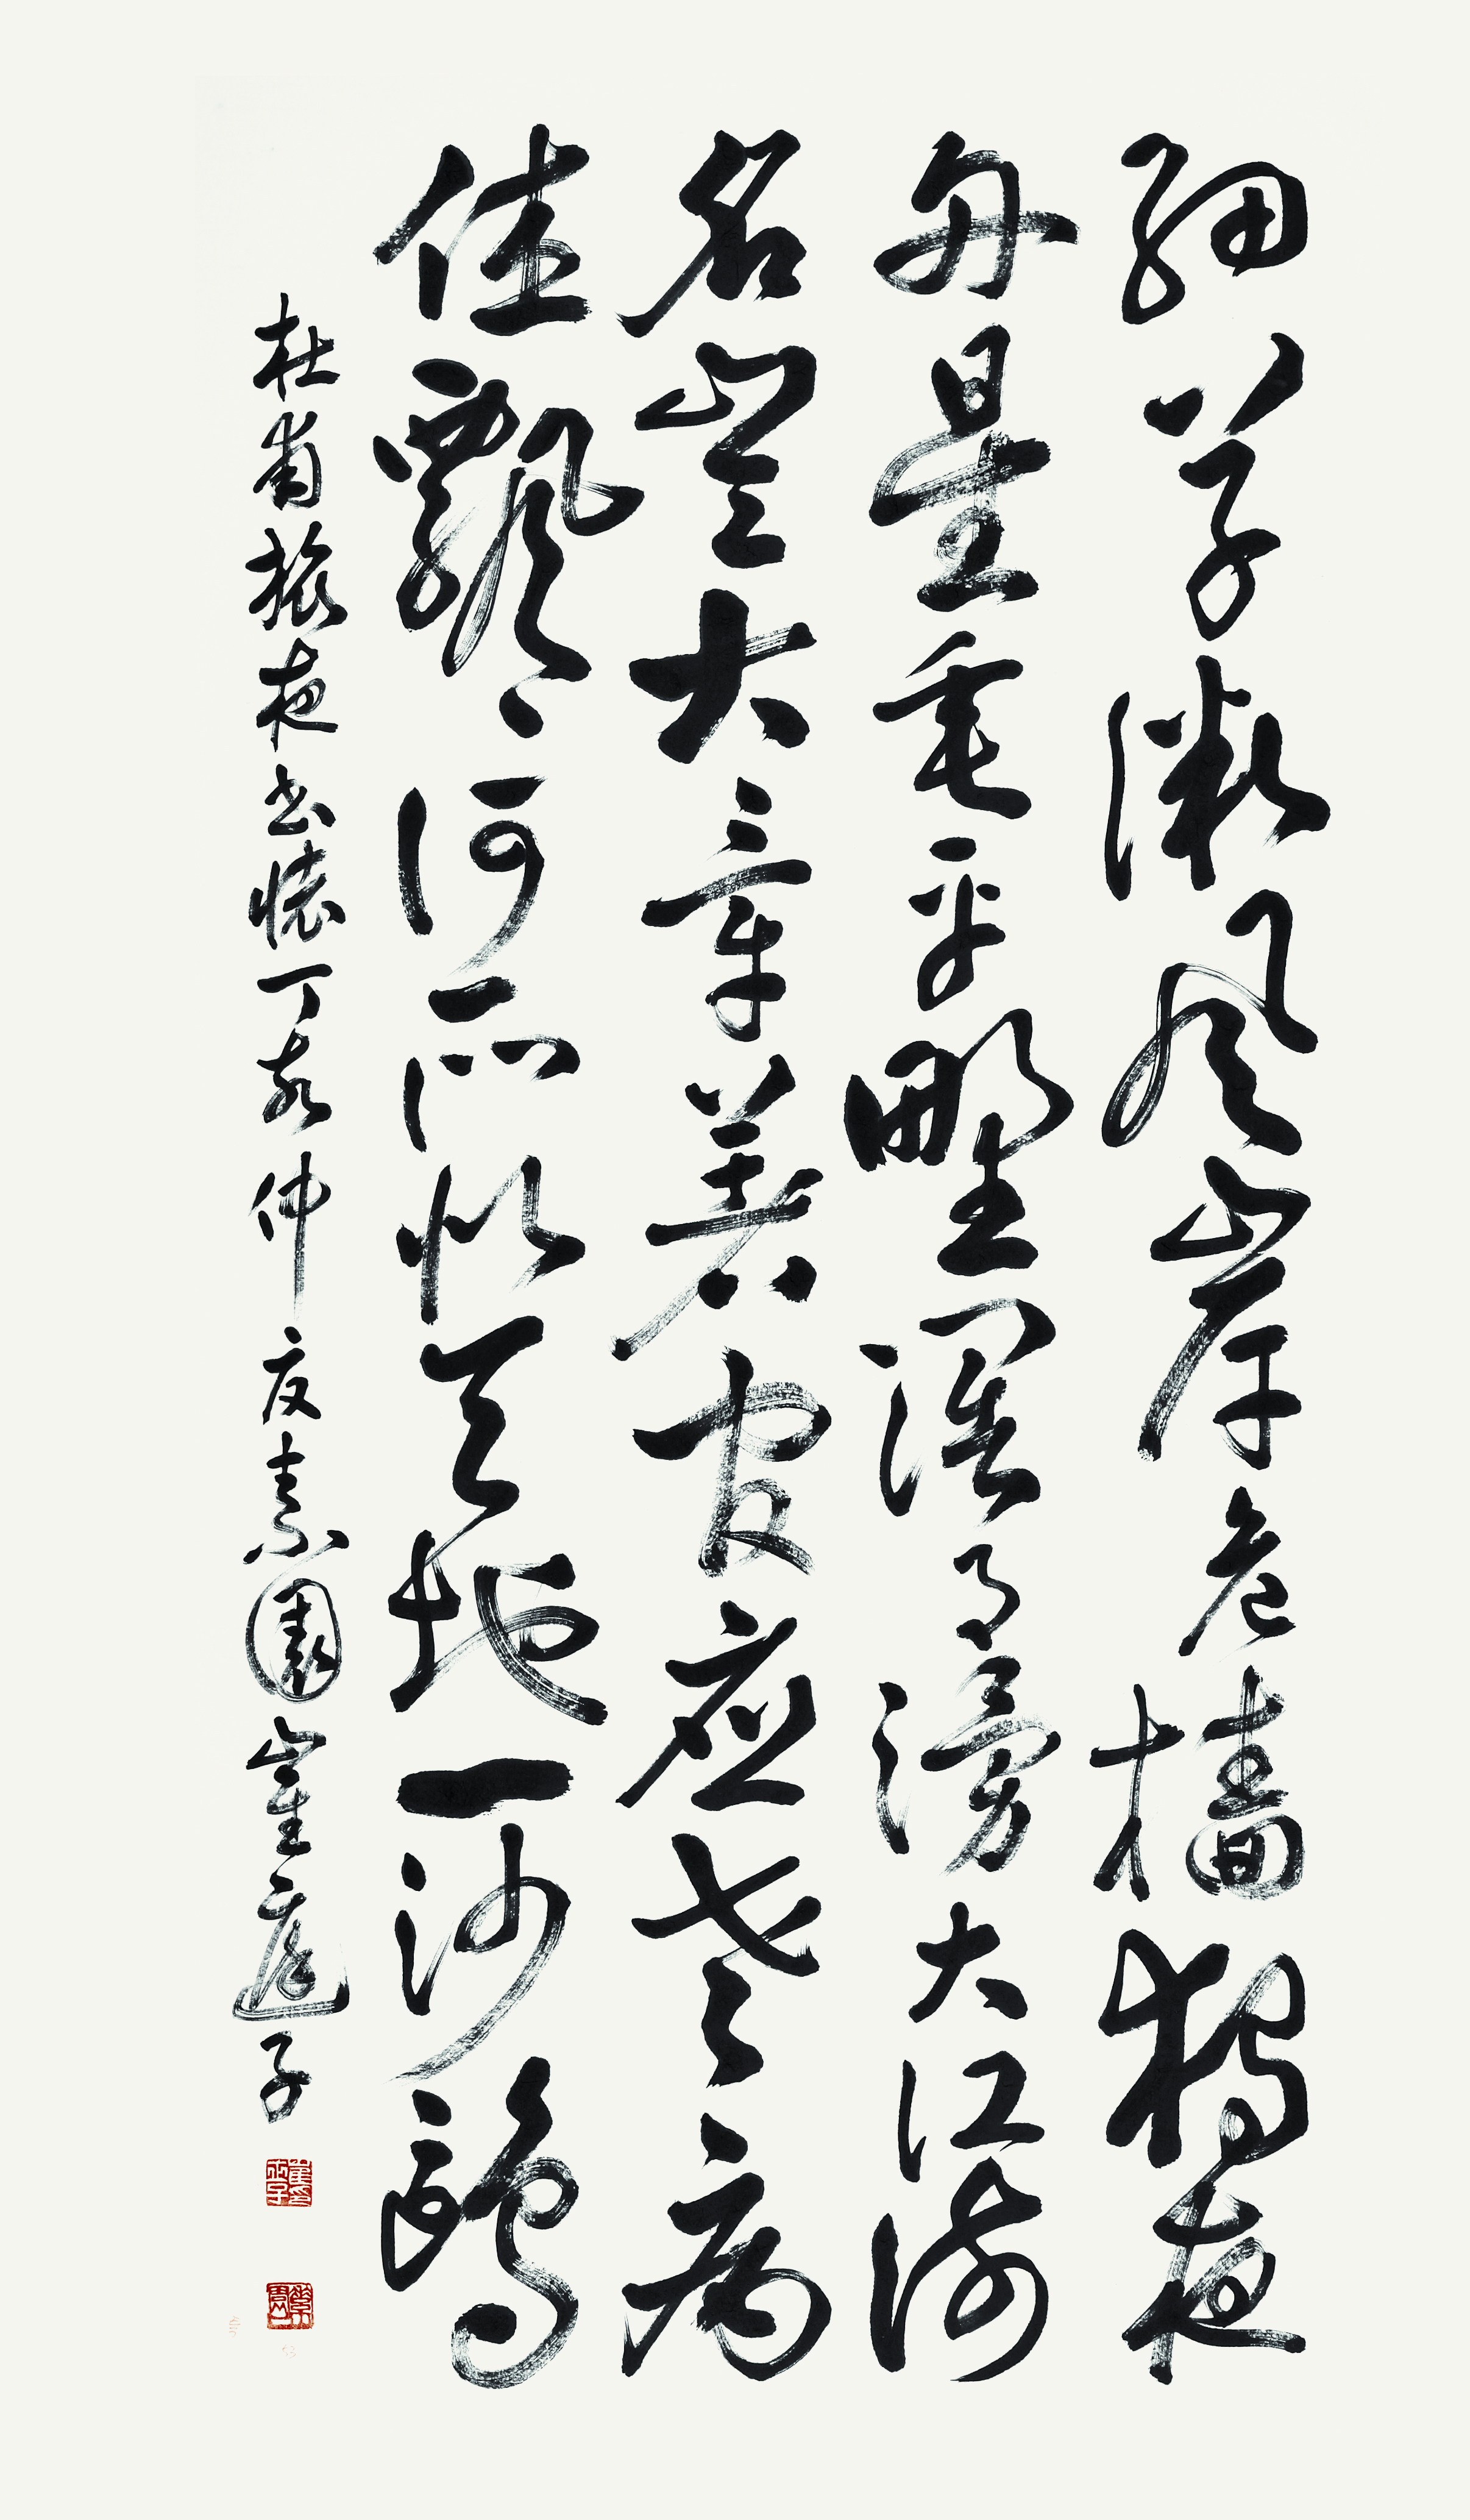 細草微風岸危檣獨夜
舟星垂平野濶月湧大江流
名豈文章著官應老病
休飄飄何所似天地一沙鷗
杜甫旅夜書懷丁亥仲夏素園崔庭子